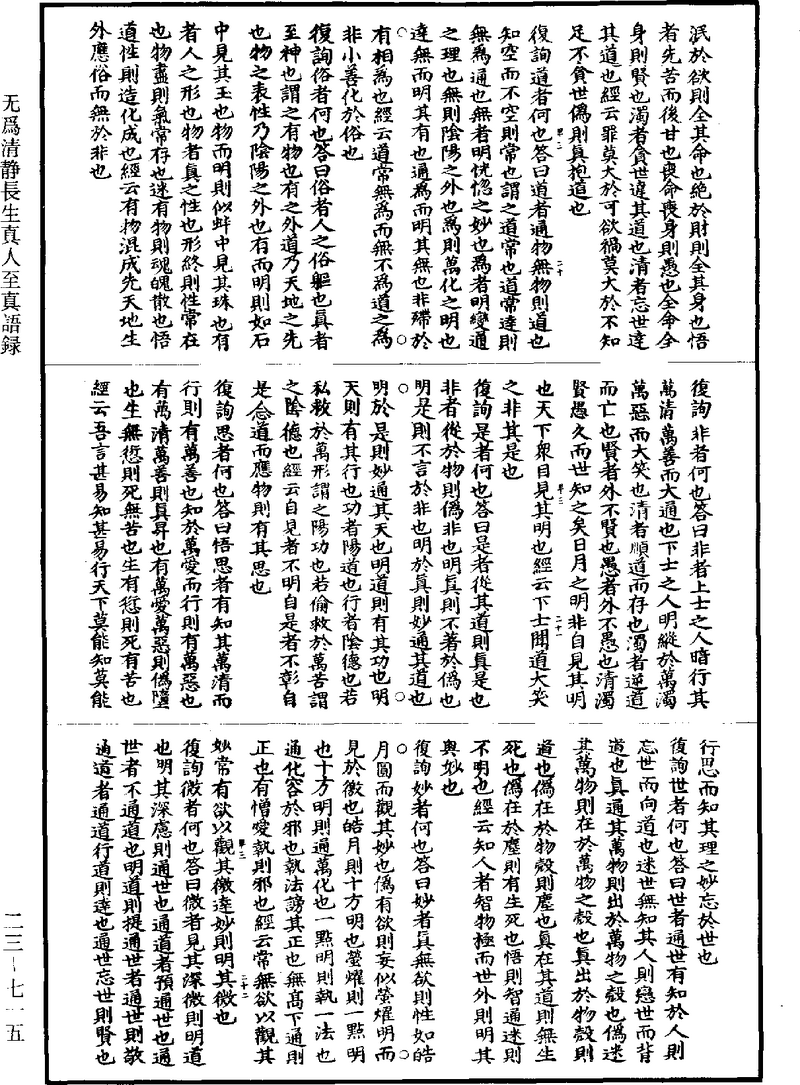 泯於欲則全其命也絶於財則全其身也悟
者先苦而後甘也喪命喪身則愚也全命全
身則賢也濁者貪世違其道也清者忘世達
其道也經云罪莫大於可欲禍莫大於不知
足不貪世僞則真抱道也
復詢道者何也答曰道者通物無物則道也
知空而不空則常也謂之道常也道常達則
無為通也無者明恍惚之妙也為者明變通
之理也無則陰陽之外也為則萬化之明也
達無而明其有也通為而明其無也非殢於
有相為也經云道常無為而無不為道之為
非小善化於俗也
復詢俗者何也答曰俗者人之俗軀也真者
至神也謂之有物也有之外道乃天地之先
也物之表性乃陰陽之外也有而明則如石
中見其玉也物而明則似蚌中見其珠也有
者人之形也物者真之性也形終則性常在
也物盡則氣常存也迷有物則魂魄散也悟
道性則造化成也經云有物混成先天地生
外應俗而無於非也
復詢非者何也答曰非者上士之人暗行其
萬清萬善而大通也下士之人明縱於萬濁
萬惡而大笑也清者順道而存也濁者逆道
而亡也賢者外不賢也愚者外不愚也清濁
賢愚久而世知之矣日月之明非自見其明
也天下衆目見其明也經云下士聞道大笑
之非其是也
復詢是者何也答曰是者從其道則真是也
非者從於物則僞非也明真則不著於僞也
明是則不言於非也明於真則妙通其道也
明於是則妙通其天也明道則有其功也明
天則有其行也功者陽道也行者陰德也若
私救於萬形謂之陽功也若偷救於萬苦謂
之陰德也經云自見者不明自是者不彰自
是念道而應物則有其思也
復詢思者何也答曰悟思者有知其萬清而
行則有萬善也知於萬愛而行則有萬惡也
有萬清萬善則真昇也有萬愛萬惡則僞墮
也生無愆則死無苦也生有愆則死有苦也
經云吾言甚易知甚易行天下莫能知莫能
行思而知其理之妙忘於世也
復詢世者何也答曰世者通世有知於人則
忘世而向道也迷世無知其人則戀世而背
道也真通其萬物則出於萬物之殼也僞迷
其萬物則在於萬物之殼也真出於物殼則
道也僞在於物殼則塵也真在其道則無生
死也僞在於塵則有生死也悟則智通迷則
不明也經云知人者智物極而世外則明其
奥妙也
復詢妙者何也答曰妙者真無欲則性如皓
月圓而觀其妙也僞有欲則妄似螢燿明而
見於徼也皓月則十方明也螢燿則一點明
也十方明則通萬化也一點明則執一法也
通化容於邪也執法謗其正也無髙下通則
正也有憎愛執則邪也經云常無欲以觀其
妙常有欲以觀其徼達妙則明其微也
復詢微者何也答曰微者見其深微則明道
也明其深應則通世也通道者預通世也通
世者不通道也明道則提通世者通世則敬
通道者通道行道則達也通世忘世則賢也
无爲清靜長生真人至真語録
二三－七一五